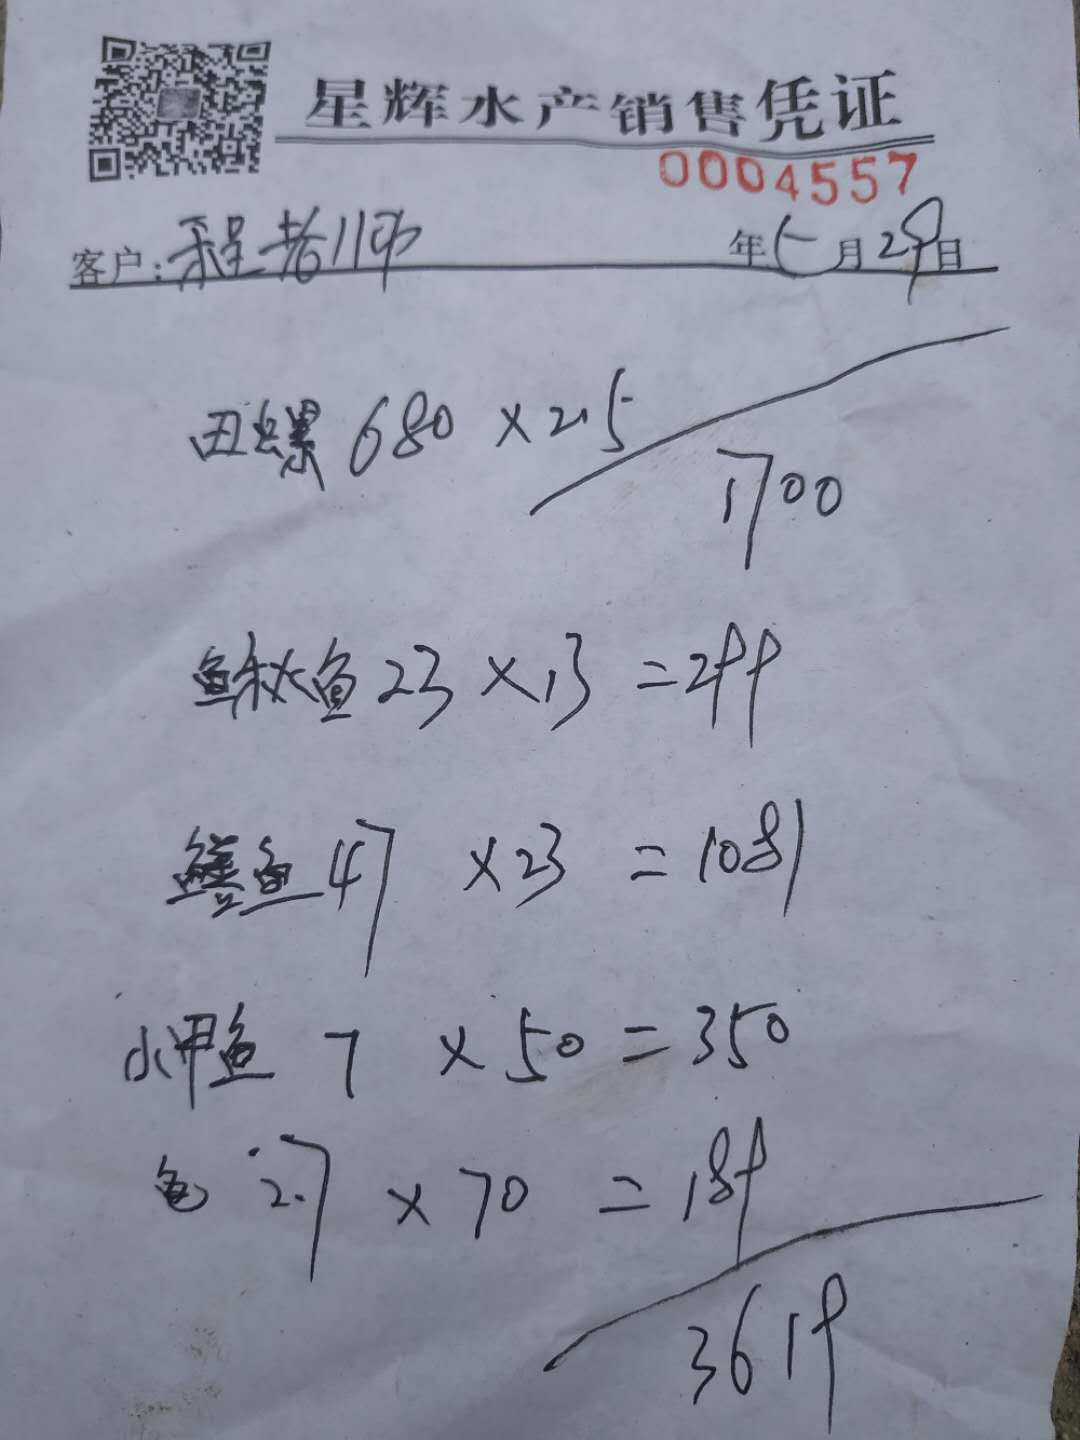 星辉水产销售凭证
0004557
客户:程老师 年 5月29日
田螺 680 × 2.5
1700
鳅鱼 23 × 13 = 299
鳝鱼 47 × 23 = 1081
小甲鱼 7 × 50 = 350
2.7 × 70 = 189
3619